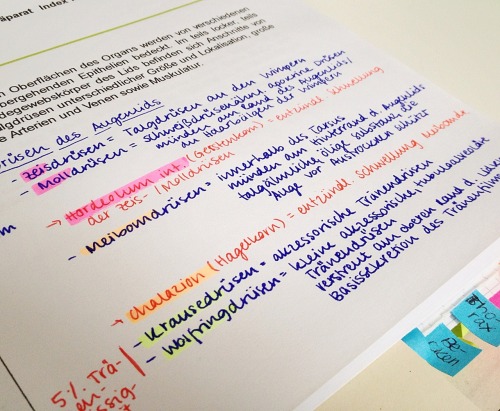 äparat Index
n Oberflächen des Organs werden von verschiedenen
bergehenden Epithelien bedeckt. Im teils locker, teils
degewebskörper des Lids befinden sich Anschnitte von
algdrüsen unterschiedlicher Größe und Lokalisation, große
e Arterien und Venen sowie Muskulatur.
rüsen des Augenlids
- Zeisdrüsen = Talgdrüsen an den Wimpern
- Molldrüsen = Schweißdrüsenähnl. apokrine Drüsen
münden am Rand des Augenlids/
an Haarbälgen der Wimpern
→ Hordeolum int. (Gerstenkorn) = entzündl. Schwellung
der Zeis-/Molldrüsen
- Meibomdrüsen = innerhalb des Tarsus
münden am Hinterrand d. Augenlids
talgähnliche ölige Substanz die
Auge vor Austrocknen schützt
→ Chalazion (Hagelkorn) = entzündl. Schwellung
- Krausedrüsen = akzessorische Tränendrüsen
- Wolfringdrüsen = kleine akzessorische tubuloalveoläre
Tränendrüsen
verstreut am oberen Rand d. Lids
Basissekretion des Tränenfilms
m
5% Trä-
en-
ssig-
Be-
cken
Tho-
rax